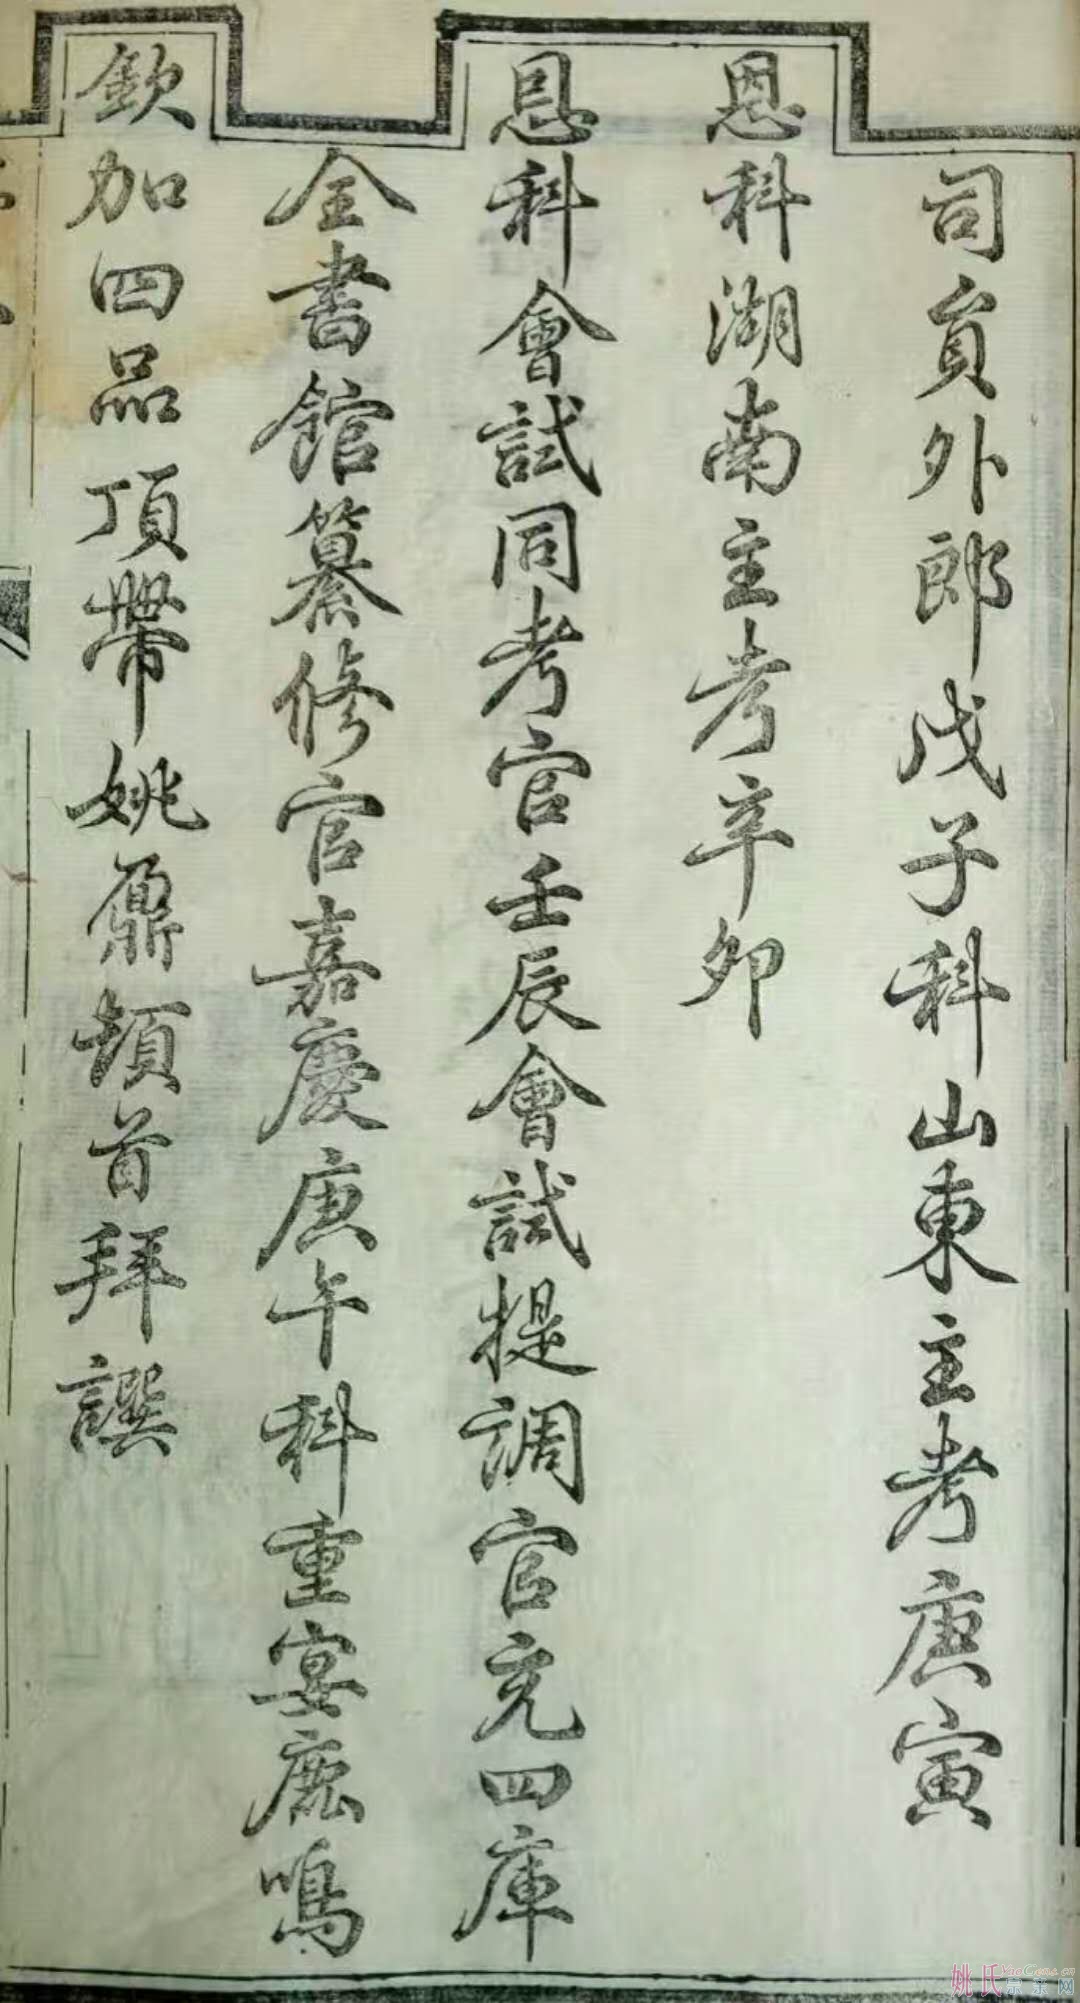 司員外郎戊子科山東主考庚寅
恩科湖南主考辛卯
恩科會試同考官壬辰會試提調官充四庫
全書館纂修官嘉慶庚午科重宴鹿鳴
欽加四品頂帶姚鼐頓首拜譔
姚氏宗亲网
YaoGens.cn